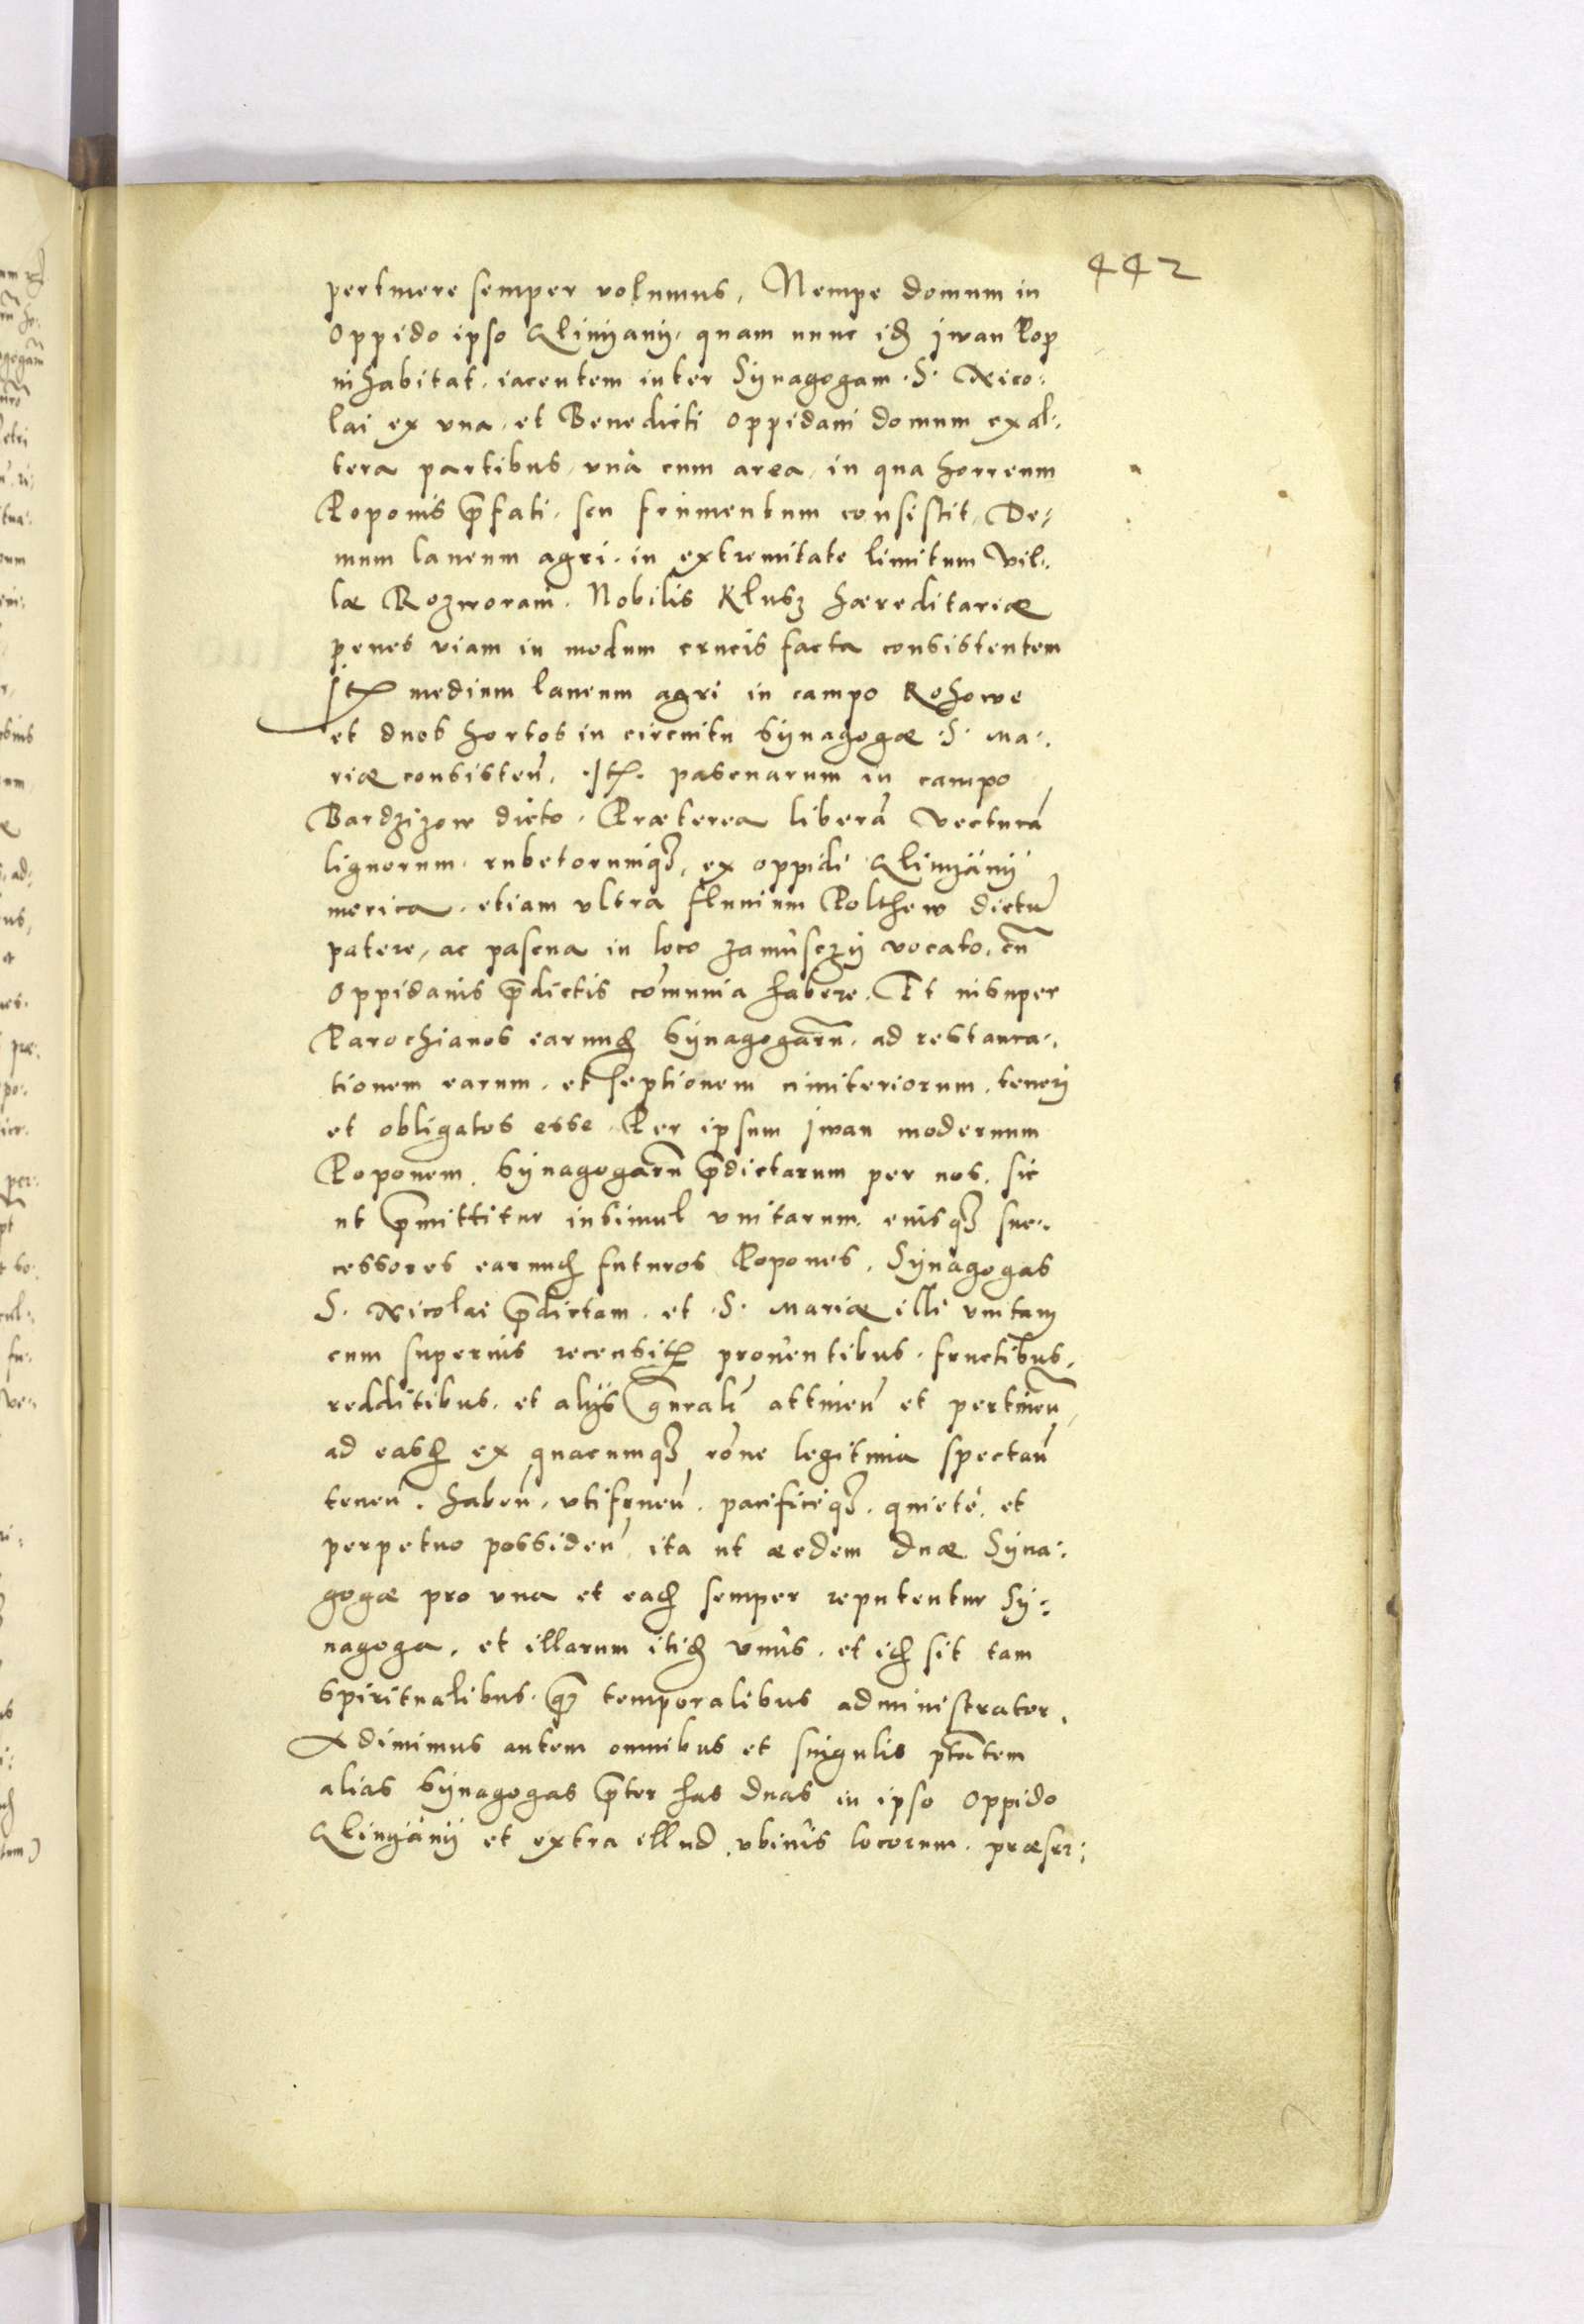 442
pertinere semper volumus, Nempe domum in
oppido ipso Glinyany, quam nunc id͠ Jwan Pop
inhabitat, iacentem inter Synagogam .S. Nico:
lai ex vna, et Benedicti oppidani domum ex al:
tera partibus, vnà cum area, in qua horreum
Poponis p̄fati, seu frumentum consistit, De:
mum laneum agri, in extremitate limitum vil:
læ Rozworani, Nobilis Klusz hæreditariæ
penes viam in modum crucis facta consistentem
It̄ medium laneum agri in campo Rohowe
et duos hortos in circuitu synagogæ .S. Ma:
riæ consisteñ. It̄. pascuarum in campo
Bardzizow dicto. Præterea liberā vecturā
lignorum, rubetorumq₃, ex oppidi Glinyány
merica, etiam vltra fluuium Polthew dictū
patere, ac pascua in loco zamûsczy vocato, cū
oppidanis p̄dictis cōmunia habere. Et insuper
Parochianos earund͠ synagogarū, ad restaura:
tionem earum, et septionem cimiteriorum, teneri
et obligatos esse. Per ipsum Jwan modernum
Poponem, synagogarū p̄dictarum per nos, sic
ut p̄mittitur insimul vnitarum, eiusq₃ suc:
cessores earund͠ futuros Popones, Synagogas
S. Nicolai p̄dictam, et .S. Mariæ illi vnitam
cum superius recensit̄ prouentibus, fructibus,
redditibus, et alijs gn̄ralr̄ attineñ et pertineñ,
ad easd͠ ex quacumq₃ rōne legitima spectañ
teneñ. habeñ, vtifrueñ, pacificeq₃, quietè, et
perpetuo possideñ, ita ut æedem duæ Syna:
gogæ pro vna et ead͠ semper reputentur Sy:
nagoga, et illarum itid͠ vnus, et id͠ sit tam
spiritualibus, q̄ temporalibus administrator.
Adimimus autem omnibus et singulis ptātem
alias synagogas p̄ter has duas in ipso oppido
Glinyány et extra illud, vbiuis locorum, præser: